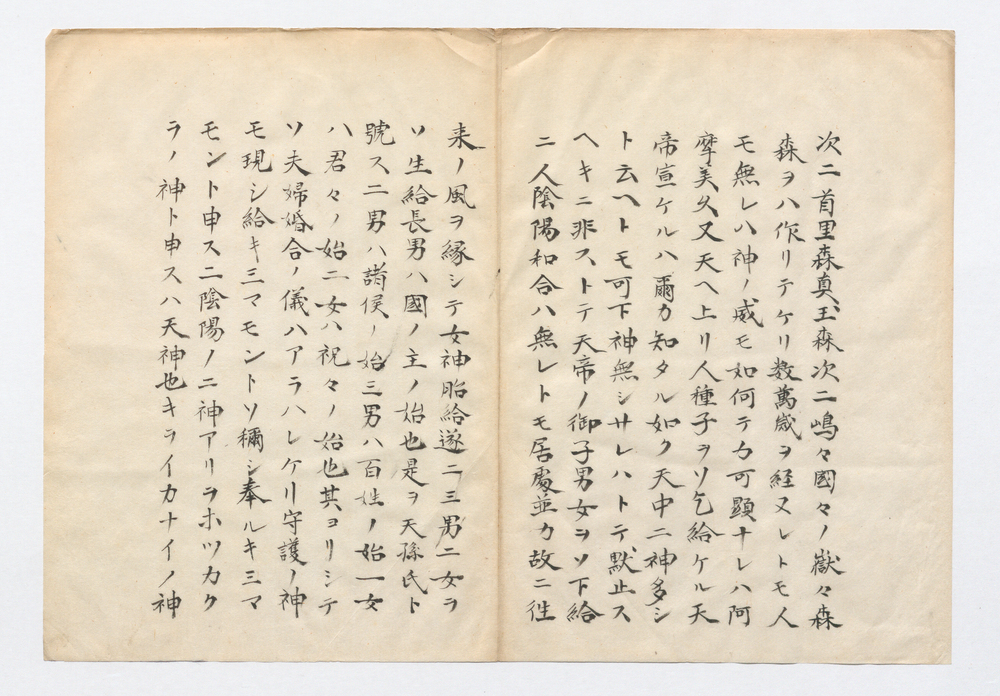 次ニ首里森真玉森次ニ嶋々國々ノ嶽々森
森ヲハ作リテケリ数萬歳ヲ経ヌレトモ人
モ無レハ神ノ威モ如何テカ可顕ナレハ阿
摩美久又天ヘ上リ人種子ヲソ乞給ケル天
帝宣ケルハ爾カ知タル如ク天中ニ神多シ
ト云ヘトモ可下神無シサレハトテ默止ス
ヘキニ非ストテ天帝ノ御子男女ヲソ下給
二人陰陽和合ハ無レトモ居處並カ故ニ徃
来ノ風ヲ縁シテ女神胎給遂ニ三男二女ヲ
ソ生給長男ハ國ノ主ノ始也是ヲ天孫氏ト
號ス二男ハ諸侯ノ始三男ハ百姓ノ始一女
ハ君々ノ始二女ハ祝々ノ始也其ヨリシテ
ソ夫婦婚合ノ儀ハアラハレケリ守護ノ神
モ現シ給キミマモントソ稱シ奉ルキミマ
モント申ス二陰陽ノ二神アリヲホツカク
ラノ神ト申スハ天神也キライカナイノ神